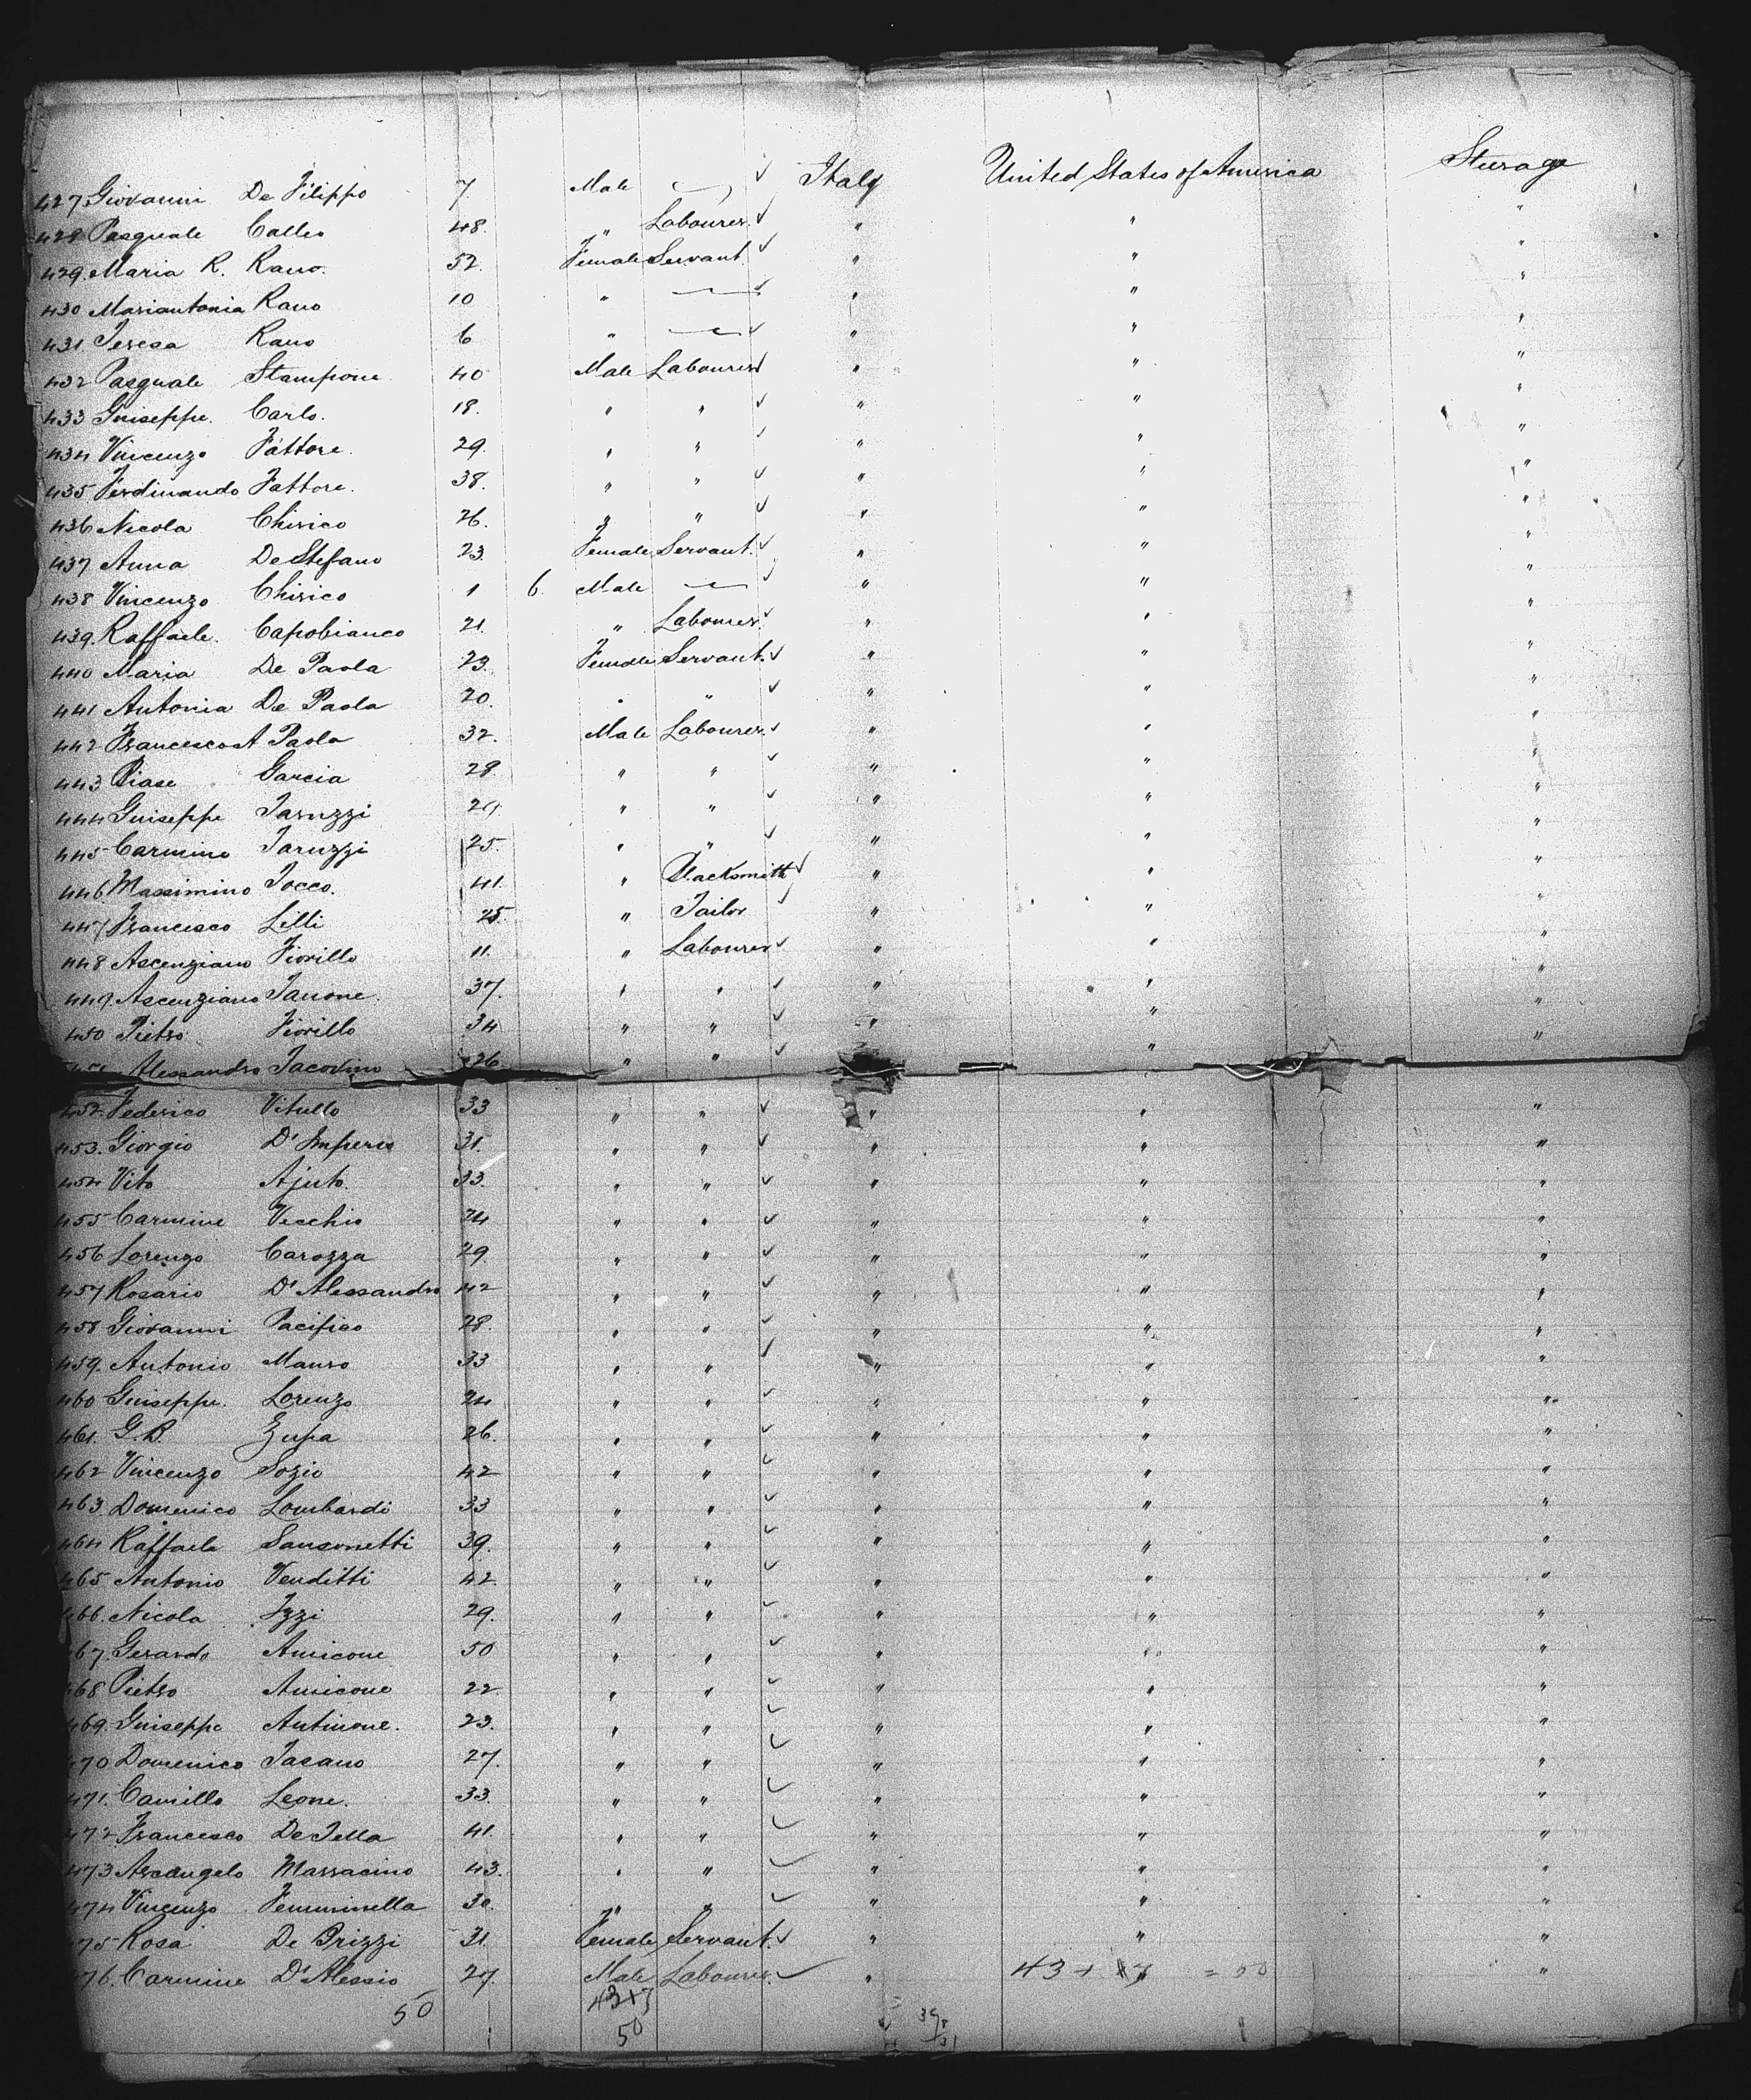 427 Giovanni De Filippo 7. Male ✓ Italy United States of America Steerage
428 Pasquale Calleo 48. " Labourer ✓ " " "
429. Maria R. Rano. 52. Female Servant. ✓ " " "
430 Mariantonia Rano 10 " — ✓ " " "
431. Teresa Rano 6 " — ✓ " " "
432 Pasquale Stampone 40 Male Labourer ✓ " " "
433 Guiseppe. Carlo. 18. " " ✓ " " "
434 Vincenzo Fattore. 29. " " ✓ " " "
435 Ferdinando Fattore. 38. " " ✓ " " "
436 Nicola Chirico 26. " " ✓ " " "
437 Anna De Stefano 23. Female Servant. ✓ " " "
438 Vincenzo Chirico 1 6. Male — ✓ " " "
439. Raffaele. Capobianco 21. " Labourer ✓ " " "
440 Maria De Paola 23. Female Servant. ✓ " " "
441 Antonia De Paola 20. " " ✓ " " "
442 Francescost Paola 32. Male Labourer ✓ " " "
443 Biase Garcia 28. " " ✓ " " "
444 Guiseppe Iaruzzi " " ✓ " " "
445 Carmino Iaruzzi 25. " " ✓ " " "
446 Massimino Iocco. 41. " Blacksmith ✓ " " "
447 Francesco Lilli 25. " Tailor ✓ " " "
448 Ascenziano Fiorillo 11. " Labourer ✓ " " "
449. Ascenziano Ianone. 37. " " ✓ " " "
450 Pietro Fiorillo 34 " " ✓ " " "
451 Alessandro Iacovino 26. " " ✓ " " "
452. Federico Vitullo 33 " " ✓ " " "
453. Giorgio D'Imperio 31. " " ✓ " " "
454 Vito Ajuto. 33. " " ✓ " " "
455 Carmine Vecchio 24 " " ✓ " " "
456 Lorenzo Carozza 29. " " ✓ " " "
457 Rosario D'Alessandro 42 " " ✓ " " "
458 Giovanni Pacifico 28. " " ✓ " " "
459. Antonio Mauro 33 " " ✓ " " "
460 Guiseppe. Lorenzo 24 " " ✓ " " "
461. G.B. Zupa 26. " " ✓ " " "
462 Vincenzo Sozio 42 " " ✓ " " "
463. Domenico Lombardi 33 " " ✓ " " "
464 Raffaele Sansonetti 39. " " ✓ " " "
465 Antonio Venditti 42. " " ✓ " " "
466. Nicola Izzi 29. " " ✓ " " "
467. Gerardo Amicone 50 " " ✓ " " "
468 Pietro Amicone 22. " " ✓ " " "
469. Guiseppe Antinone. 23. " " ✓ " " "
470 Domenico Iasano 27. " " ✓ " " "
471. Camillo Leone. 33. " " ✓ " " "
472 Francesco De Tella 41. " " ✓ " " "
473 Arcangelo Massacino 43. " " ✓ " " "
474 Vincenzo Femminella 30. " " ✓ " " "
475 Rosa De Brizzi 31. Female Servant. ✓ " " "
476. Carmine D'Alessio 27. Male Labourer. ✓ " 43 + 7 = 50 "
50 43+7
50